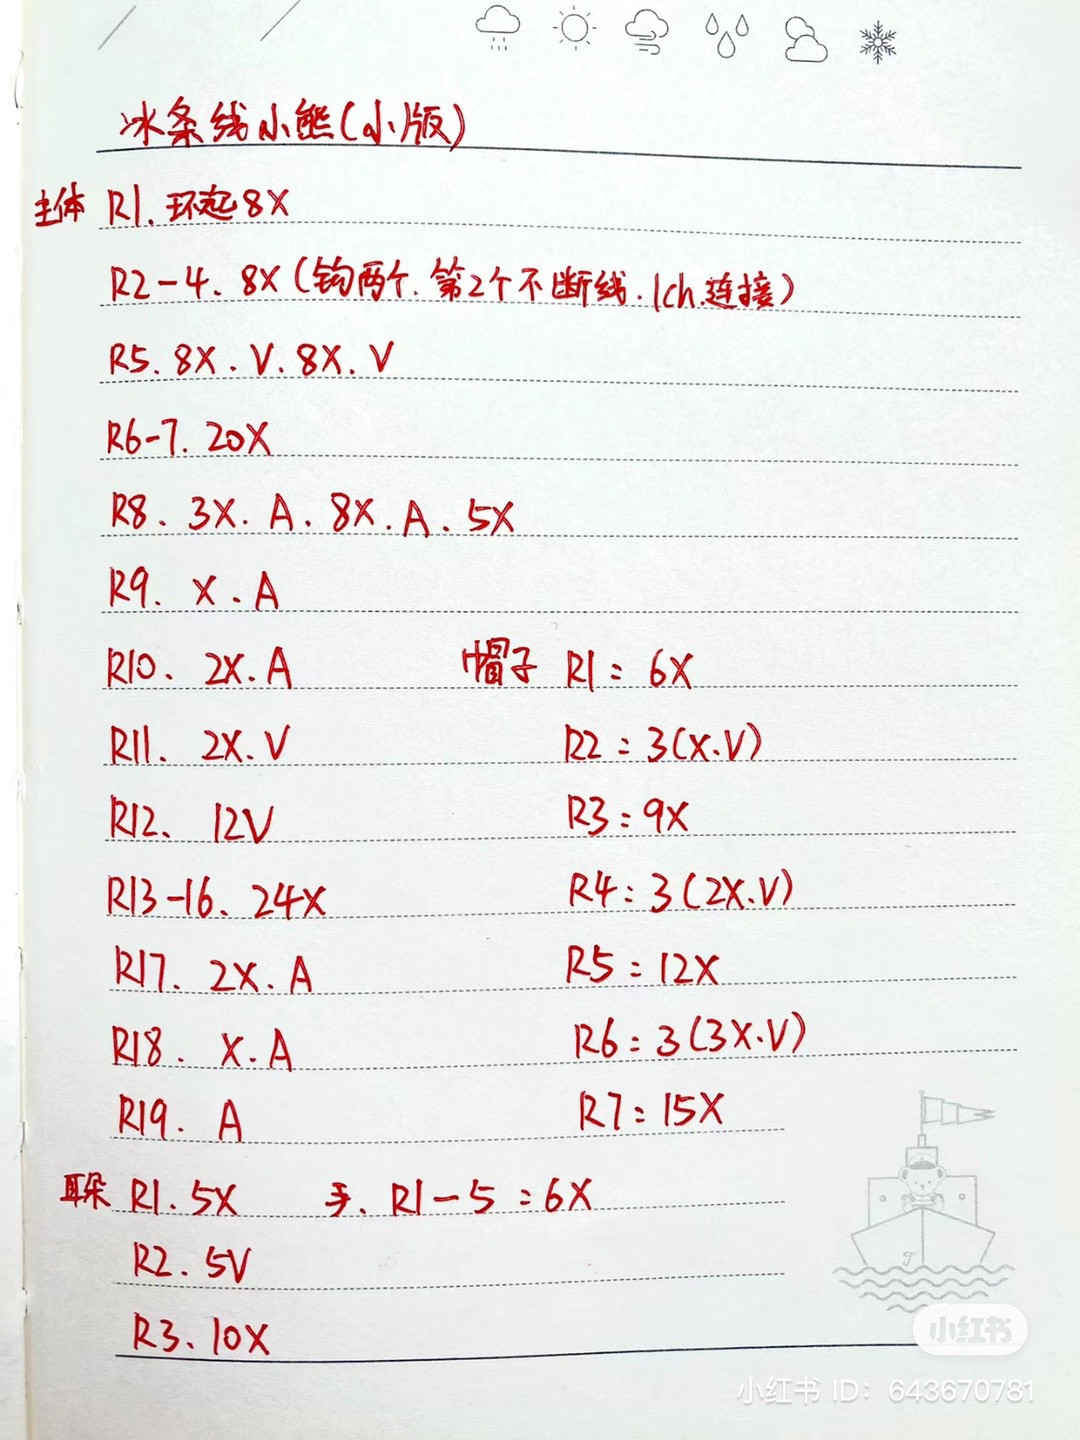 冰条线小熊(小版)
主体 R1. 环起8X
R2-4. 8X(钩两个.第2个不断线.1ch.连接)
R5. 8X. V. 8X. V
R6-7. 20X
R8. 3X. A. 8X. A. 5X
R9. X. A
R10. 2X. A
R11. 2X. V
R12. 12V
R13-16. 24X
R17. 2X. A
R18. X. A
R19. A
帽子 R1: 6X
R2: 3(X.V)
R3: 9X
R4: 3(2X.V)
R5: 12X
R6: 3(3X.V)
R7: 15X
耳朵 R1. 5X
R2. 5V
R3. 10X
手. R1-5: 6X
小红书
小红书 ID: 643670781